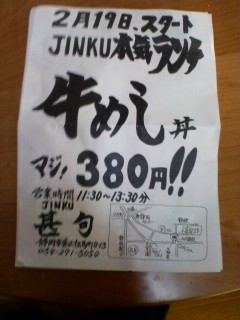 2月19日、スタート
JINKU 本気ランチ
牛めし丼
マジ！380円!!
営業時間 11:30～13:30分
JINKU
甚句